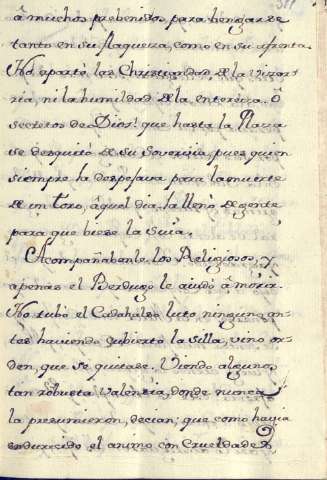 â muchos prebenidos para bengarse
tanto en su flaqueza, como en su afrenta
No apartó las Christiandad de la vizar-
ria, ni la humildad de la entereza. O
secretos de Dios! que hasta la Plaza
se desquitó de su Soverbia, pues quien
siempre la despejava para la muerte
de un toro, â quel dia, la lleno de gente
para que biese la suia.
Acompañabenle los Religiosos, y
apenas el Berdugo le aiudó â morir.
No tubó el Cadahalso luto ninguno, an-
tes haviendo cubierto la silla, vino or-
den, que se quitase. Viendo algunos
tan robusta Valentia, donde nunca
la presumieron, decian; que como havia
endurecido el animo con Crueldades